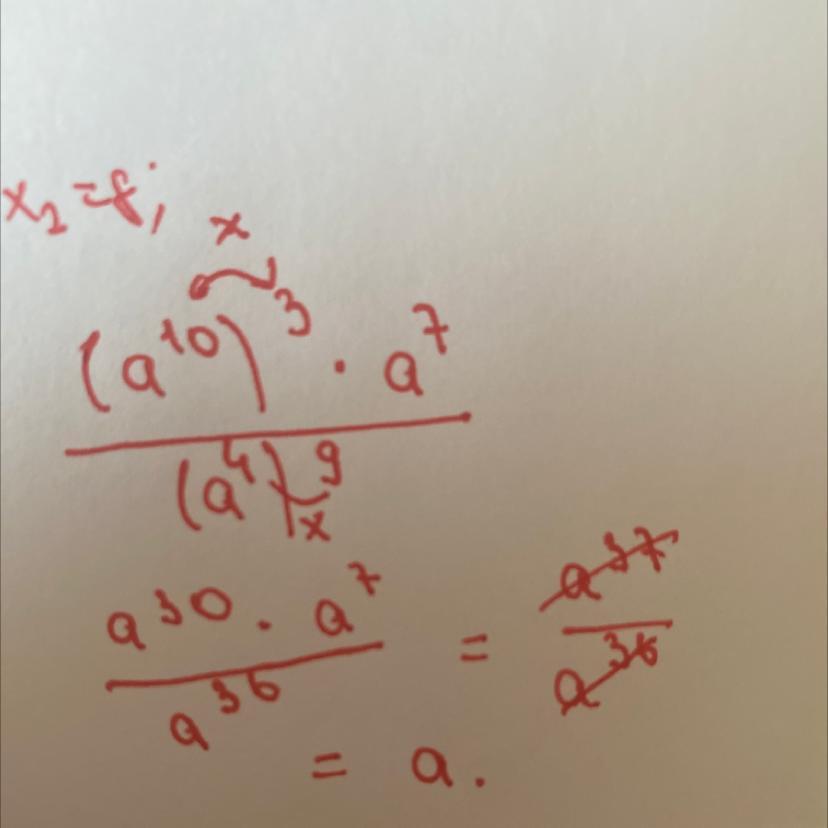 x₂ = f;
x
(a¹⁰)³ · a⁷
(a⁴)⁹
x
a³⁰ · a⁷ = a³⁷
a³⁶ a³⁶
= a.